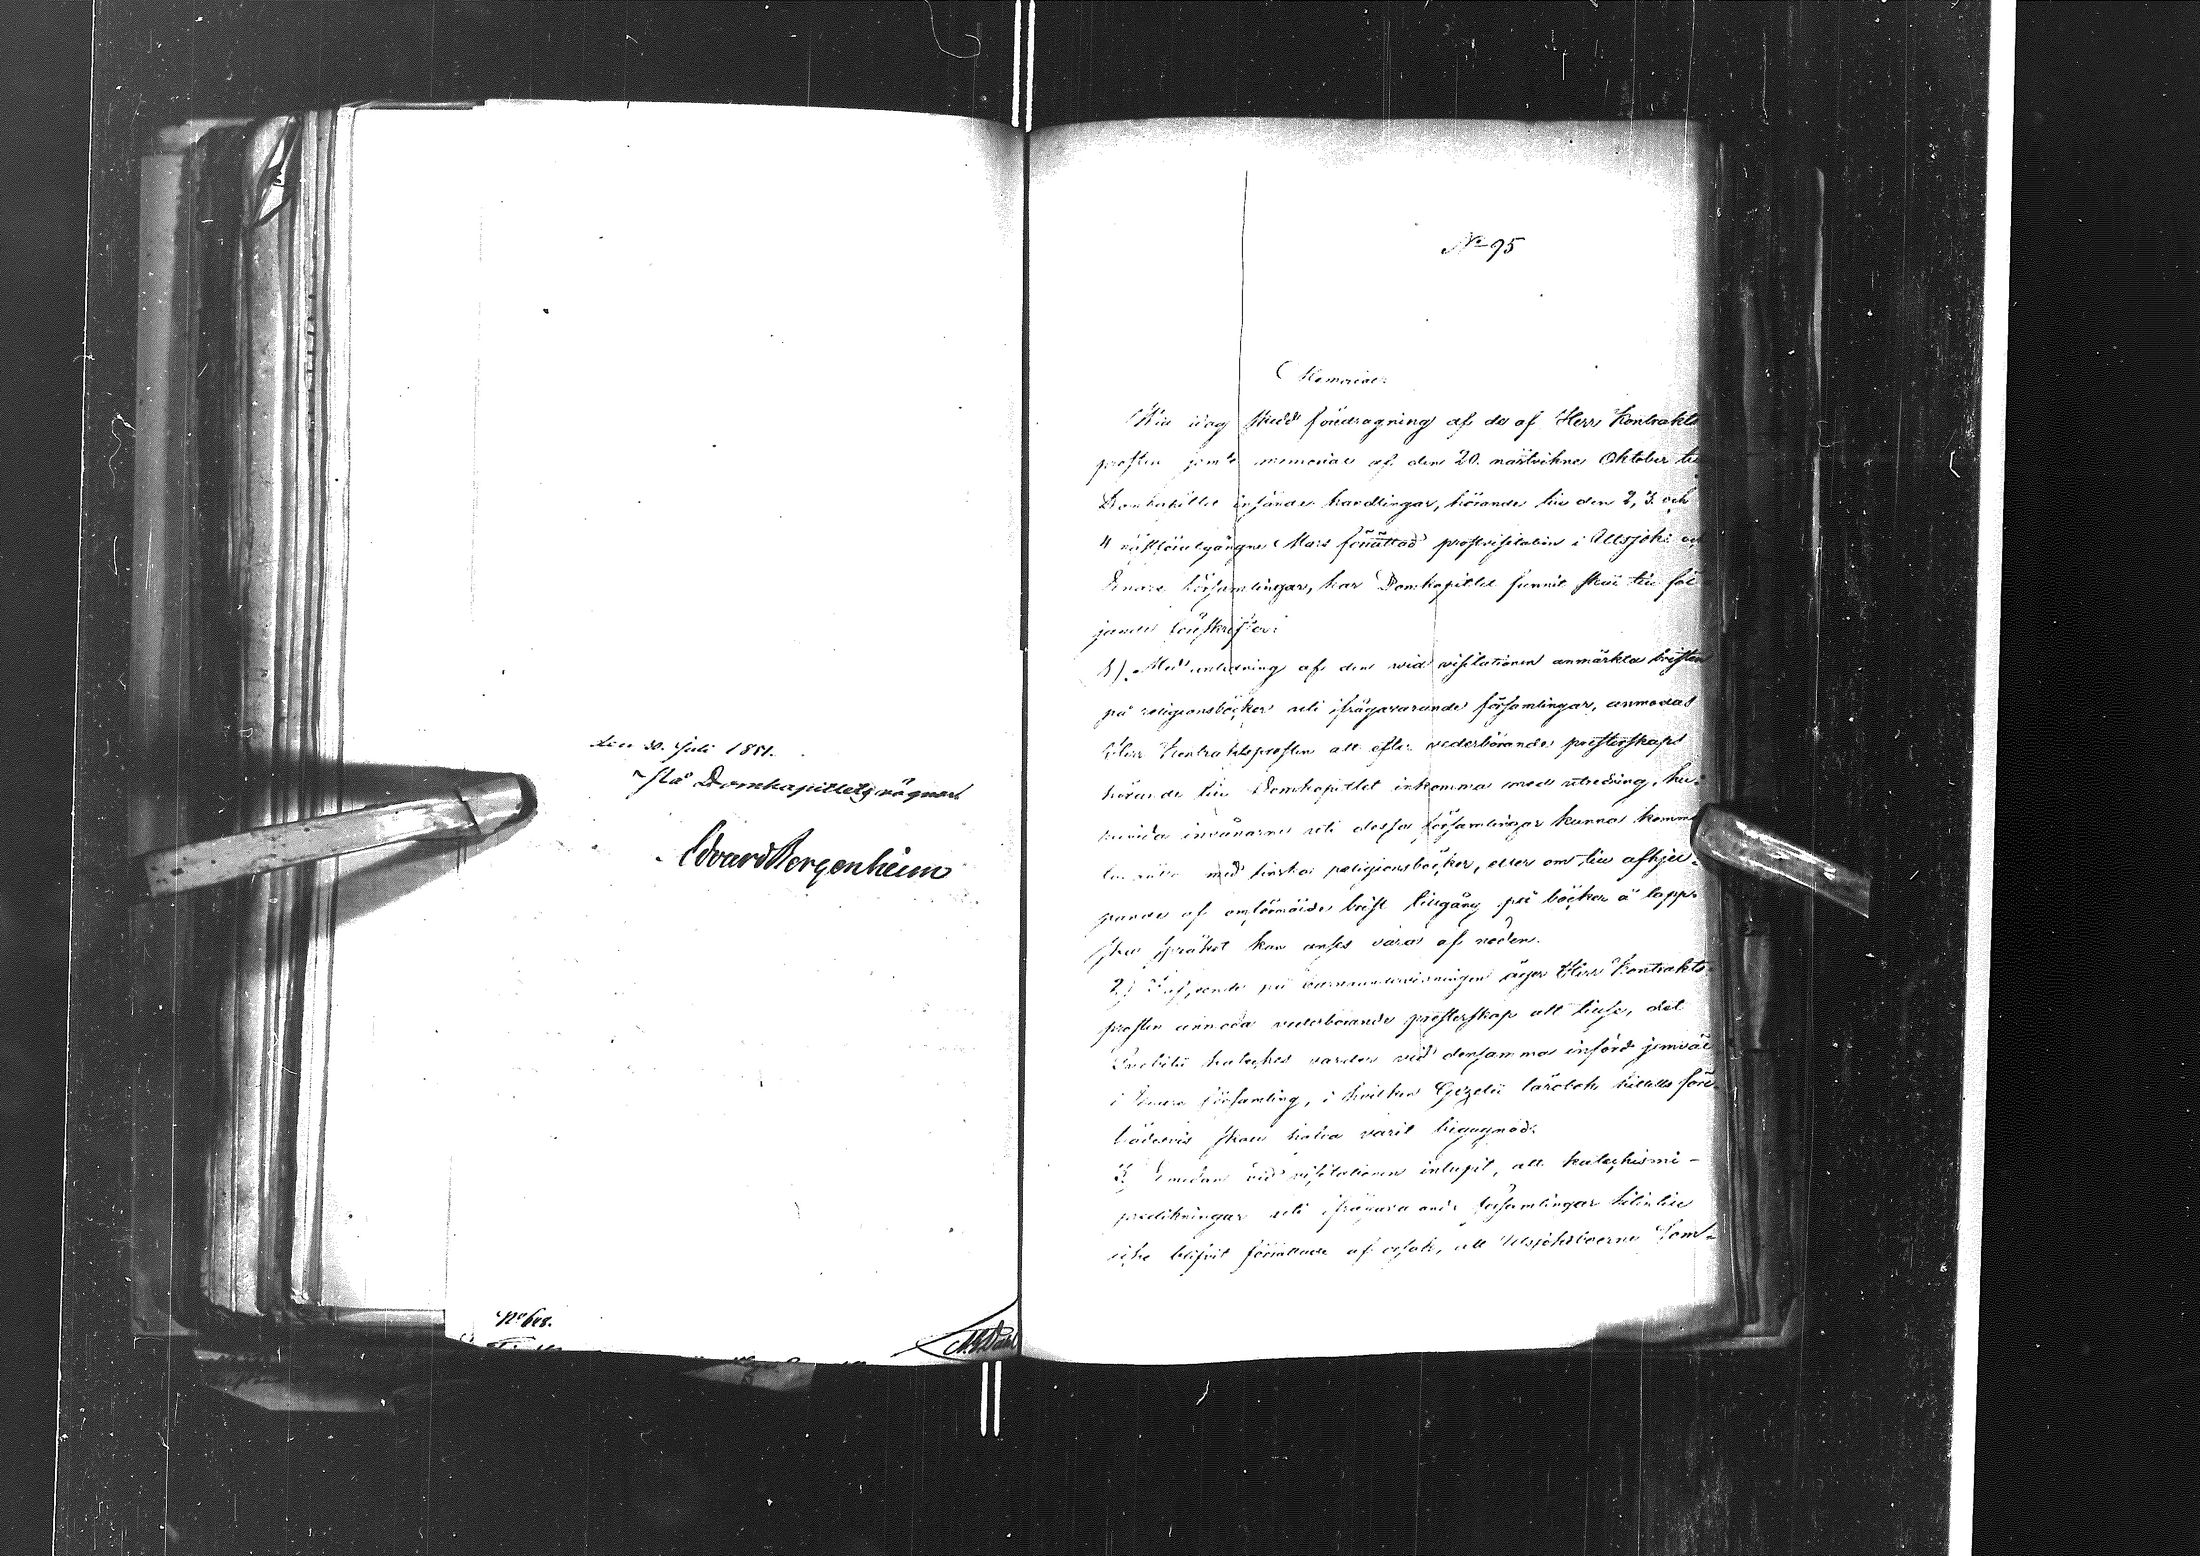 den 30. Juli 1851.
På Domkapitlets vägnar
Edvard Bergenheim
No 618.
No 95
Memorial.
Wid idag skedd föredragning af de af Herr Kontrakts
prosten jemte memorial af den 20. nästvikne Oktober till
Domkapitlet insände handlingar, hörande till den 2, 3 och
4 nästföregångne Mars förrättad prostvisitation i Utsjoki och
Enare församlingar, har Domkapitlet funnit skäl till föl
jande föreskrifter:
1) Med anledning af den wid visitationen anmärkta bristen
på religionsböcker uti ifrågavarande församlingar, anmodas
Herr Kontraktsprosten att efter vederbörande presterskaps
hörande till Domkapitlet inkomma med utredning, hu-
ruvida invånarne uti dessa församlingar kunna komma
till rätta med finska religionsböcker, eller om till afhjel-
pande af omförmälde brist tillgång på böcker å lapp-
ska språket kan anses vara af nöden.
2) Afseende på barnaundervisningen äger Herr Kontrakts-
prosten anmoda vederbörande presterskap att tillse, det
Svebilii kateches varder vid densamma införd jemväl
i Enare församling, i hvilken Gezelii lärobok hittills före-
trädesvis skall hafva varit begagnad.
3. Emedan vid visitationen inlupit, att katechismi-
predikningar uti ifrågavarande församlingar hitintill
icke blifvit förrättade af orsak, att Utsjokiboerne som-